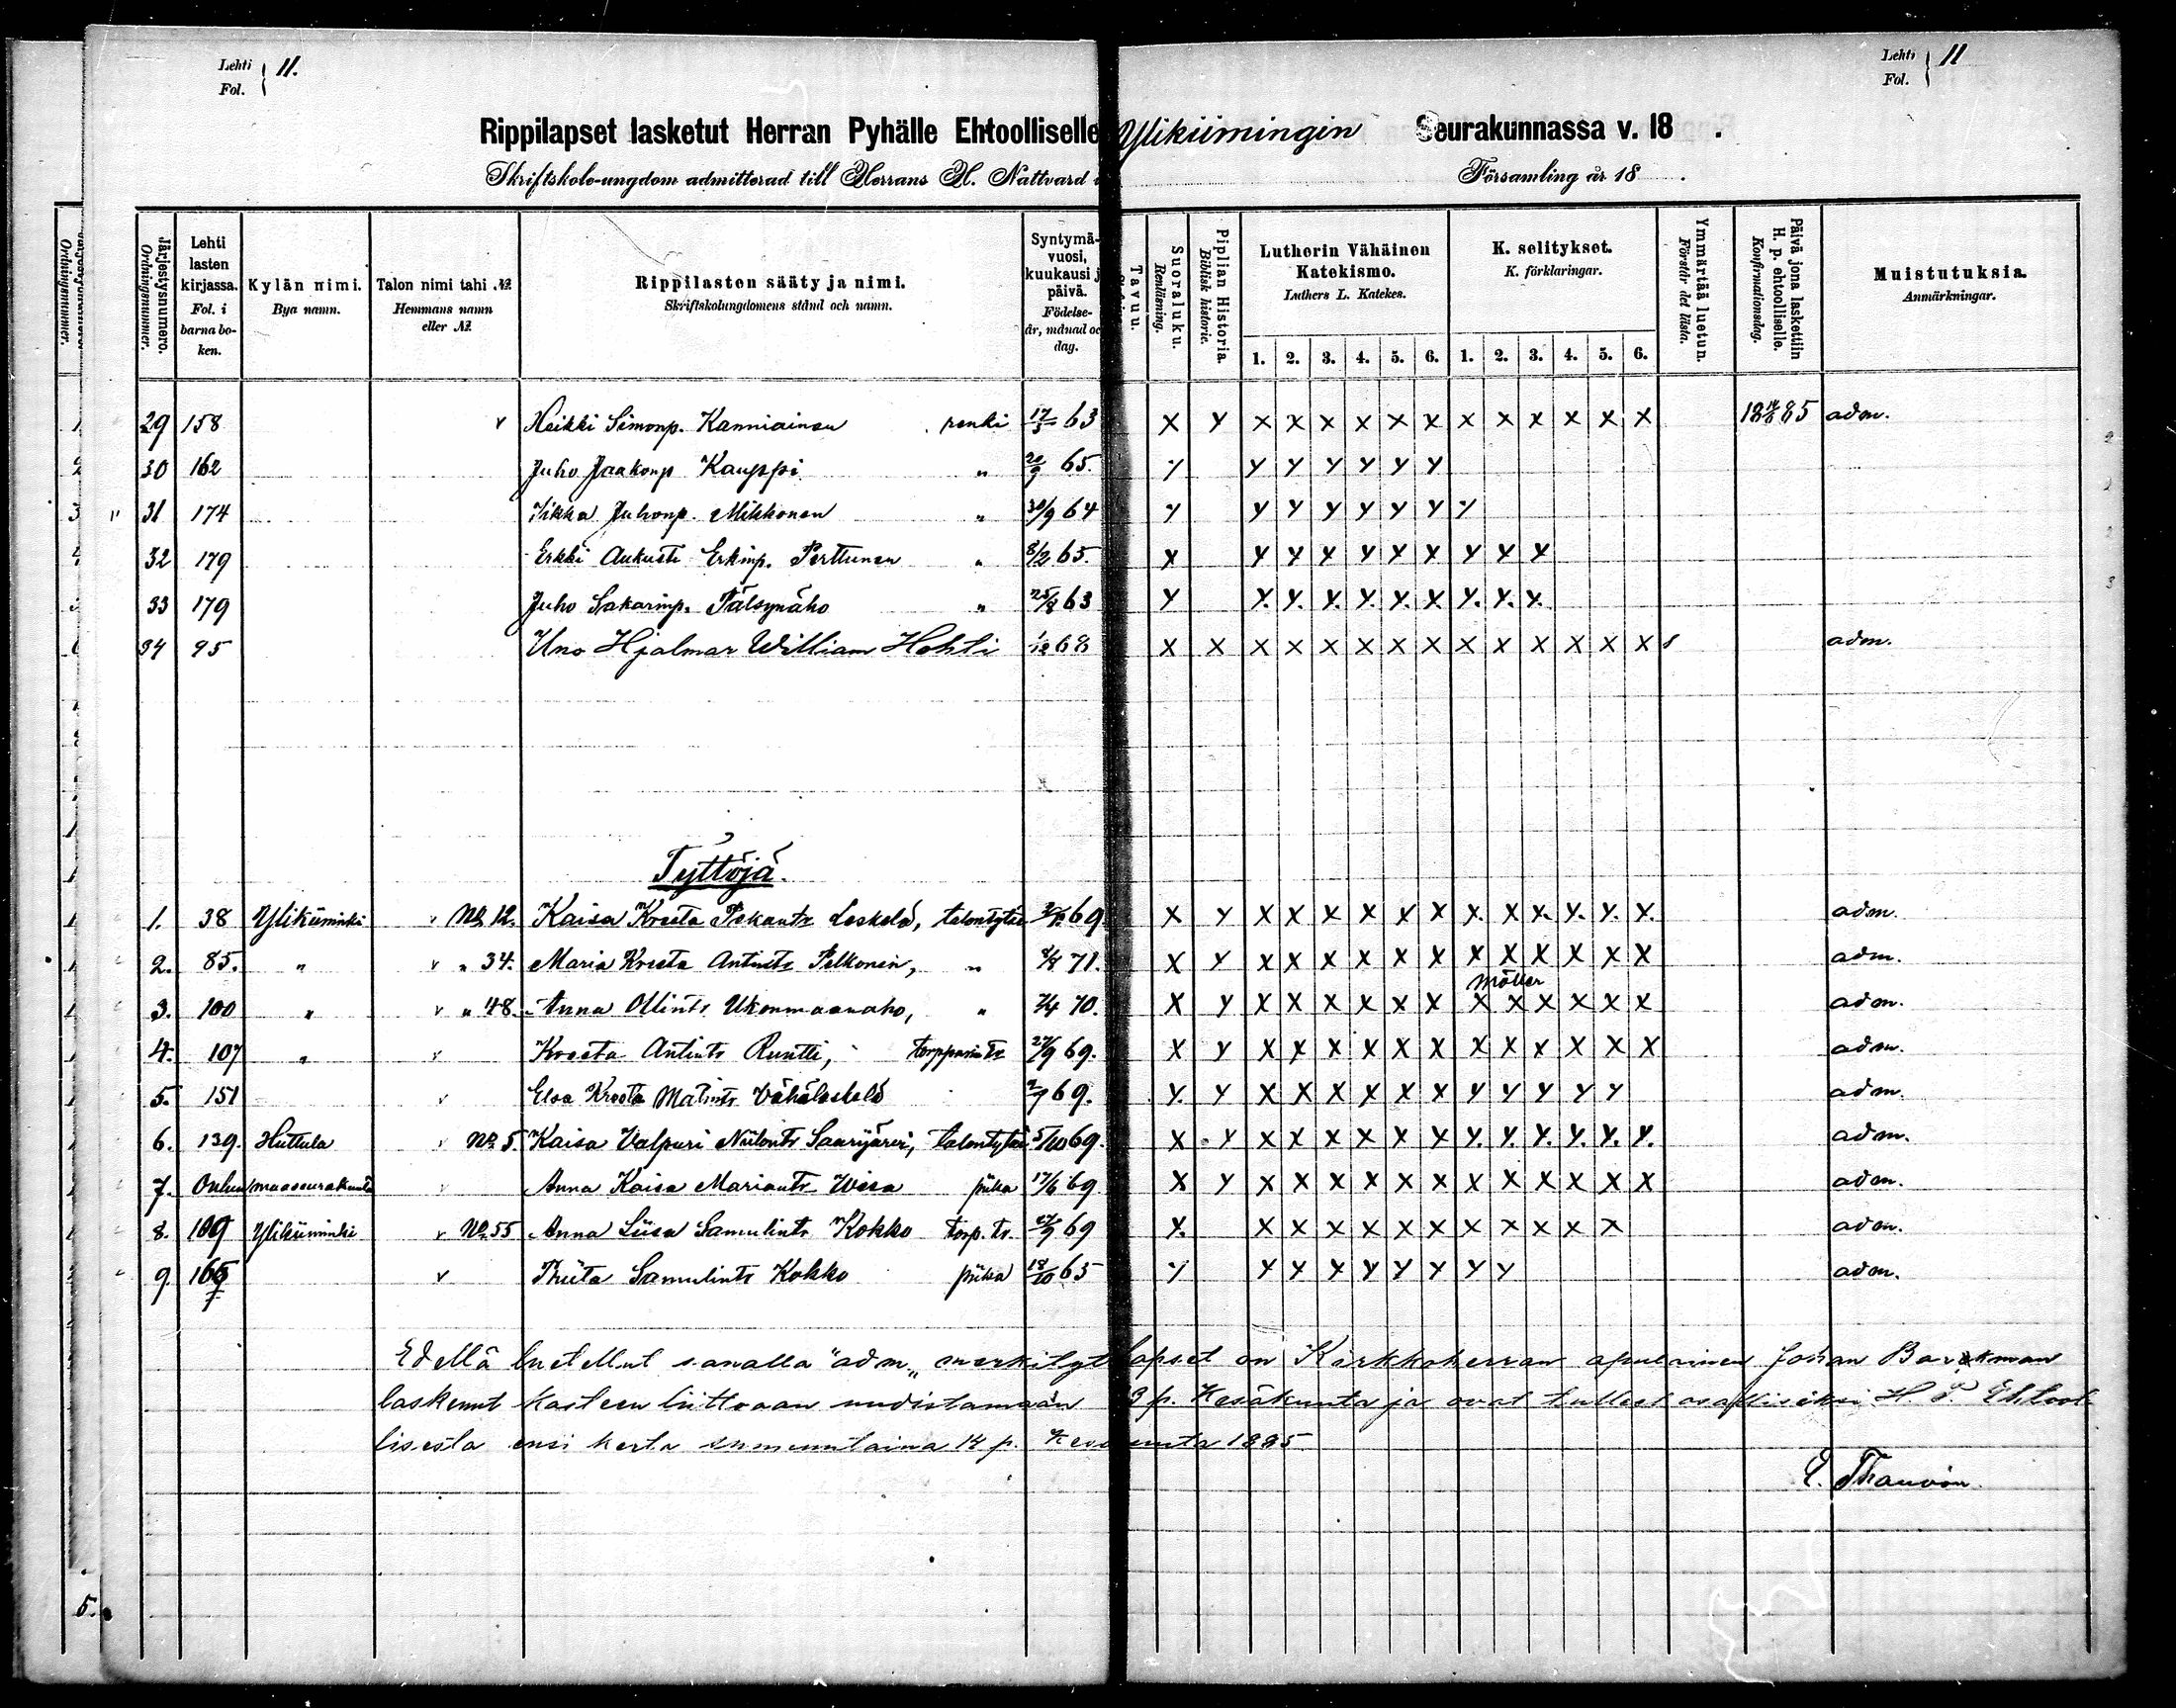 Lehti 11.
Fol.
Lehti 11
Fol.
Rippilapset lasketut Herran Pyhälle Ehtoolliselle Ylikiimingin Seurakunnassa v. 18 .
Skriftskole-ungdom admitterad till Herrans H. Nattvard i Församling år 18 .
Järjestysnumero. Ordningsnummer.
Lehti lasten kirjassa. Fol. i barna boken.
Kylän nimi. Bya namn.
Talon nimi tahi №. Hemmans namn eller №.
Rippilasten sääty ja nimi. Skriftskolungdomens stånd och namn.
Syntymävuosi, kuukausi j päivä. Födelseår, månad oc dag.
Tavuu.
Suoraluku. Renläsning.
Piplian Historia. Biblisk historie.
Lutherin Vähäinen Katekismo. Luthers L. Katekes.
K. selitykset. K. förklaringar.
Ymmärtää luetun. Förstår det lästa.
Päivä jona laskettiin H. p. ehtoolliselle. Konfirmationsdag.
Muistutuksia. Anmärkningar.
1. 2. 3. 4. 5. 6. 1. 2. 3. 4. 5. 6.
29 158 v Heikki Simonp. Kanniainen renki 17/3 63 x y x x x x x x x x x x x x 18 14/6 85 adm.
30 162 Juho Jaakonp Kauppi " 20/9 65. y y y y y y y
31 174 Iikka Juhonp. Mikkonen " 30/9 64 y y y y y y y y
32 179 Erkki Aukusti Erkinp. Perttunen " 8/2 65. x y y x y x x y y x
33 179 Juho Sakarinp. Pälsynäho " 25/8 63 y y. y. y. y. y. x y. y. x.
34 95 Uno Hjalmar William Hohti 1/12 68 x x x x x x x x x x x x x x adm.
Tyttöjä.
1. 38 Ylikiiminki v No 12. Kaisa Kreeta Pekantr Leskelä, talontytär 69 x y x x x x x x x. x x. y. y. x. adm.
2. 85. " v " 34. Maria Kreeta Antintr Pelkonen, " 8/8 71. x y x x x x x x x x x x x x adm.
Möller
3. 100 " v " 48. Anna Ollintr Ukonmaanaho, " 7/4 70. x y x x x x x x x x x x x x adm.
4. 107 " v Kreeta Antintr Runtti, torpparintr 27/9 69. x y x x x x x x x x x x x x adm.
5. 151 v Elsa Kreeta Matintr Vähäleskelä 2/7 69. y. y x x x x x x y y y y y adm.
6. 139. Huttula v No. 5. Kaisa Valpuri Niilontr Saarijärvi, talontytär 5/10 69. x . y x x x x x x y. y. y. y. y. y. adm.
7. Oulun maaseurakunta v Anna Kaisa Mariantr Wisa piika 17/6 69. x y x x x x x x x x x x x x adm.
8. 109 Ylikiiminki v No. 55 Anna Liisa Samulintr Kokko torp. tr. 27/9 69 x. x x x x x x x x x x x adm.
9. 165 v Priita Samulintr Kokko piika 18/10 65 y y y x y y y y y adm.
Edellä luetellut sanalla "adm„ merkityt lapset on Kirkkoherran apulainen Johan Barckman
laskenut kasteen liittoaan uudistamaan 13 p. Kesäkuuta ja ovat tulleet osallisiksi H. P. Ehtool-
lisesta ensi kerta sunnuntaina 14 p. Kesäkuuta 1885.
E. Thauvón.